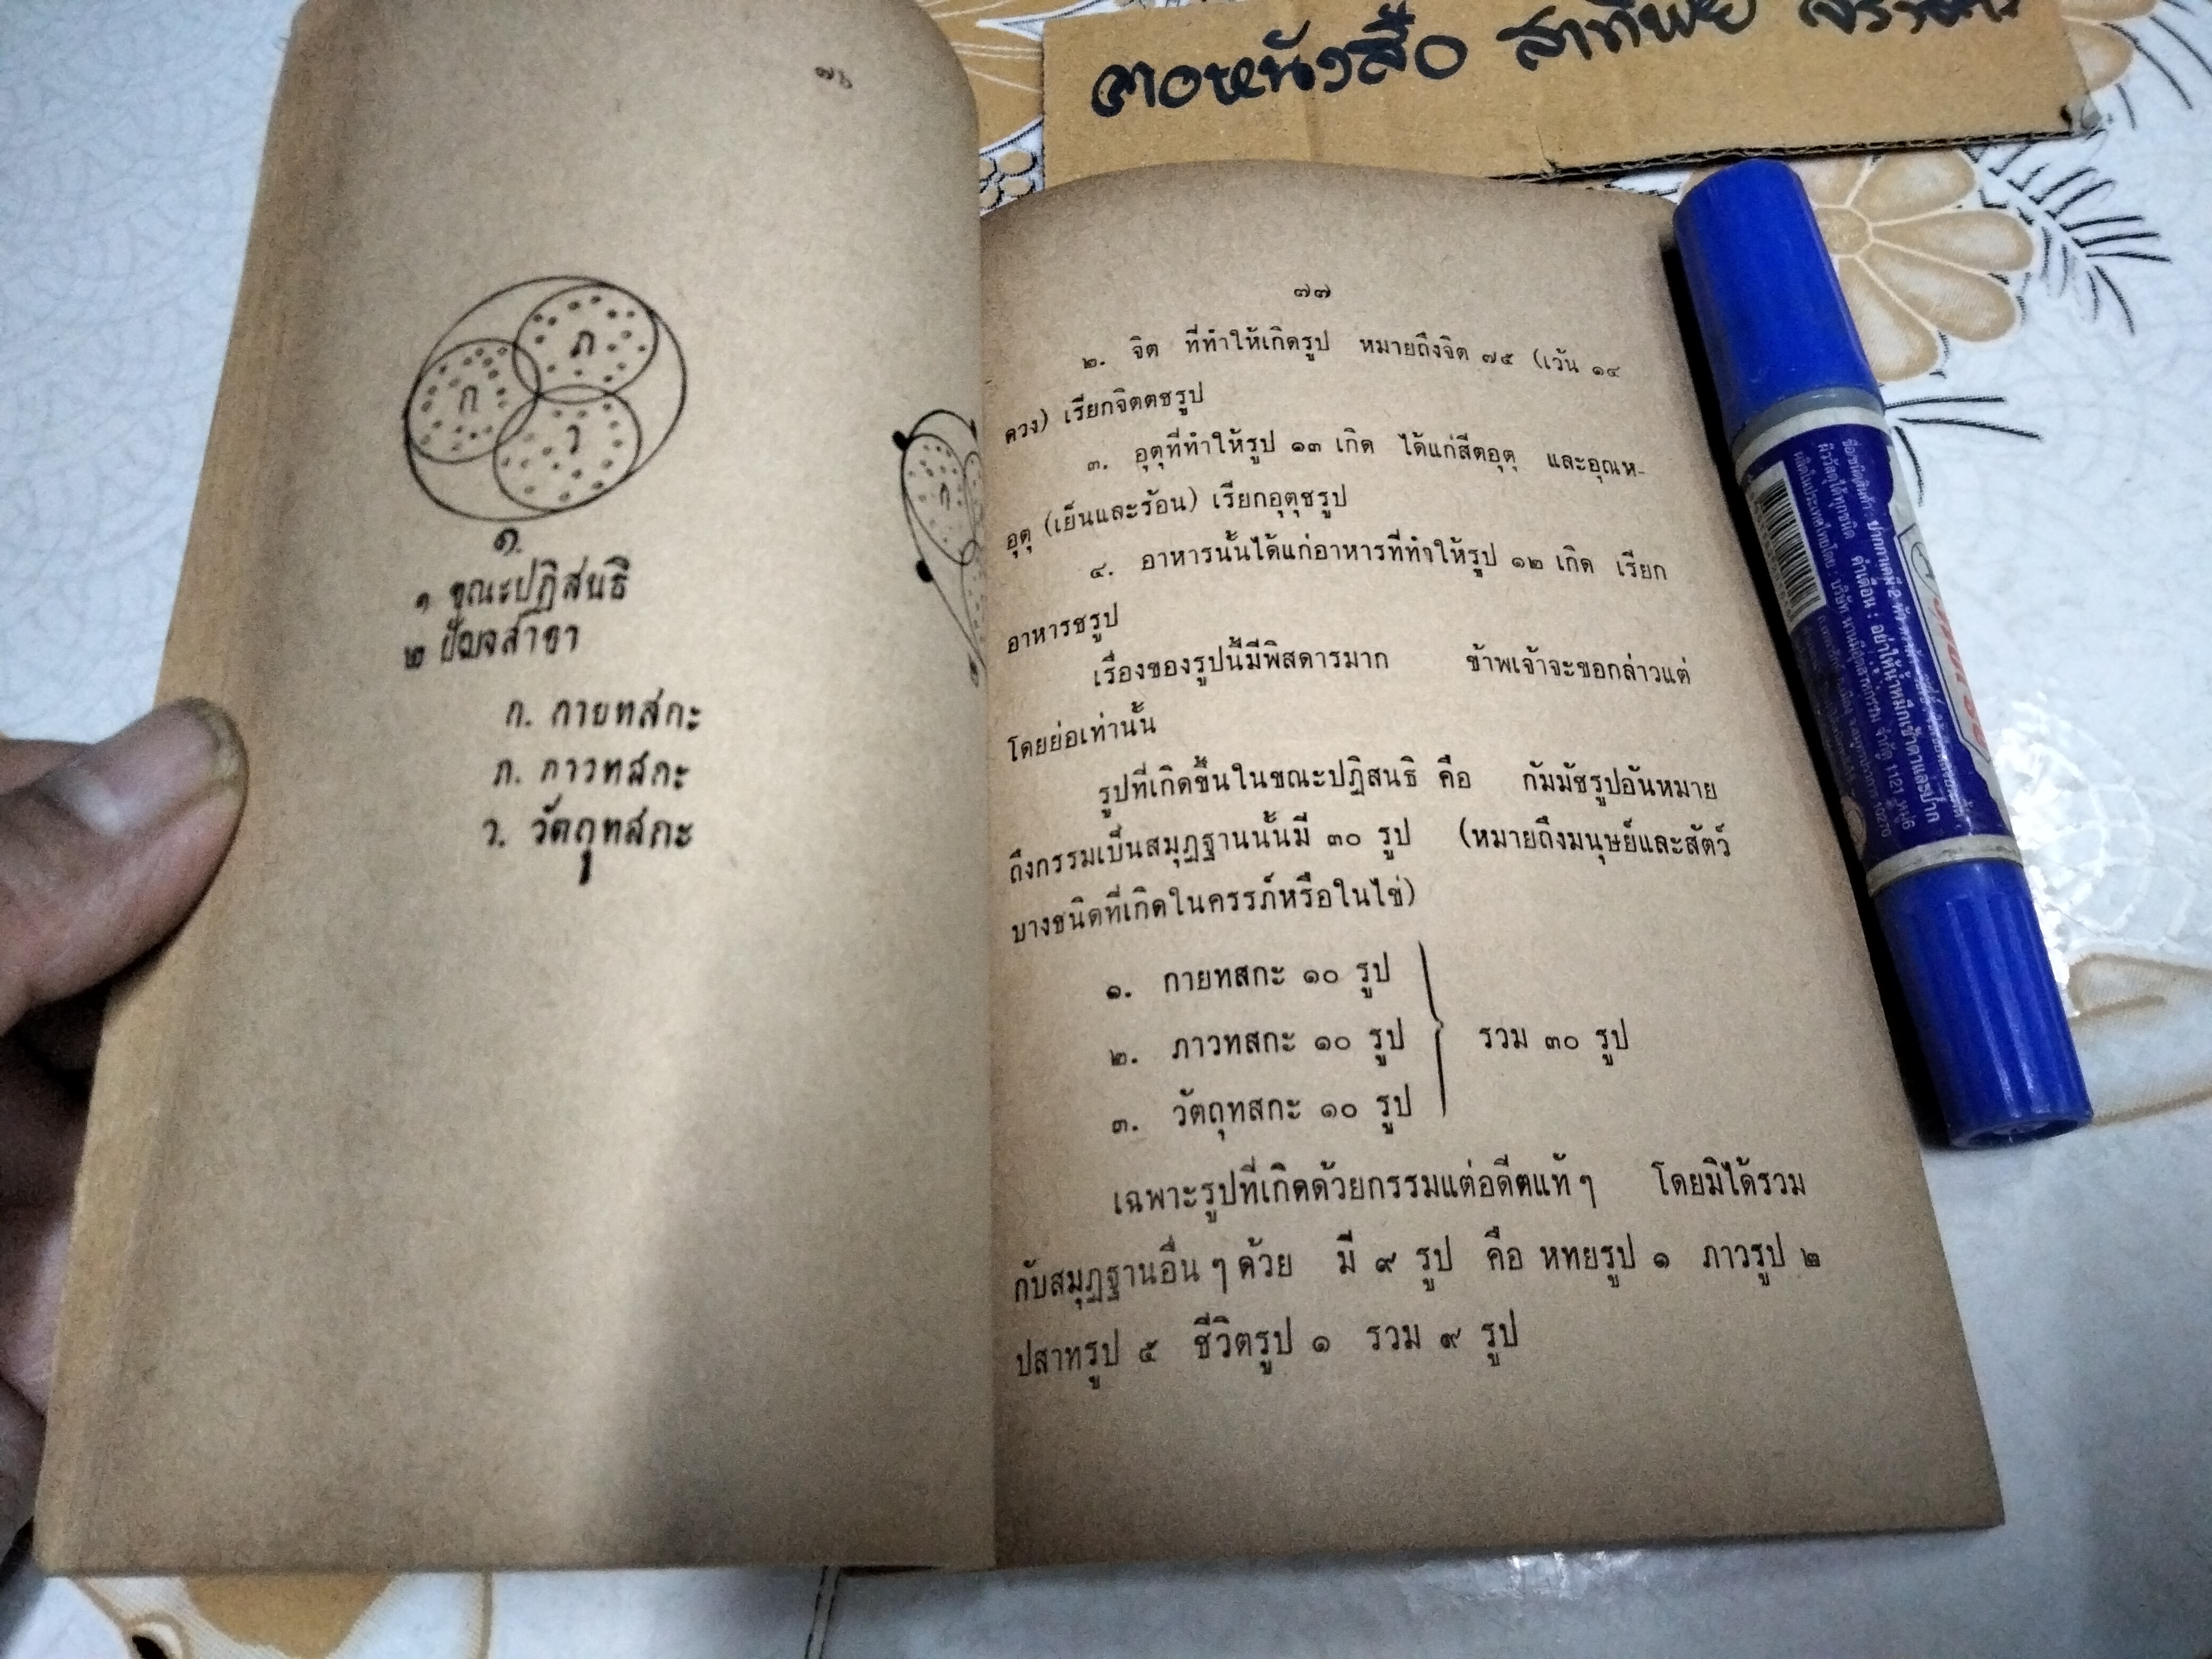 คอหนังสือ
๗๖
ก
ภ
ว
๑.
๑ ขณะปฏิสนธิ
๒ ปัญจสาขา
ก. กายทสกะ
ภ. ภาวทสกะ
ว. วัตถุทสกะ
ก
๗๗
๒. จิต ที่ทำให้เกิดรูป หมายถึงจิต ๗๕ (เว้น ๑๔
ดวง) เรียกจิตตชรูป
๓. อุตุที่ทำให้รูป ๑๓ เกิด ได้แก่สีตอุตุ และอุณห-
อุตุ (เย็นและร้อน) เรียกอุตุชรูป
๔. อาหารนั้นได้แก่อาหารที่ทำให้รูป ๑๒ เกิด เรียก
อาหารชรูป
เรื่องของรูปนี้มีพิสดารมาก ข้าพเจ้าจะขอกล่าวแต่
โดยย่อเท่านั้น
รูปที่เกิดขึ้นในขณะปฏิสนธิ คือ กัมมัชรูปอันหมาย
ถึงกรรมเป็นสมุฏฐานนั้นมี ๓๐ รูป (หมายถึงมนุษย์และสัตว์
บางชนิดที่เกิดในครรภ์หรือในไข่)
๑. กายทสกะ ๑๐ รูป
๒. ภาวทสกะ ๑๐ รูป รวม ๓๐ รูป
๓. วัตถุทสกะ ๑๐ รูป
เฉพาะรูปที่เกิดด้วยกรรมแต่อดีตแท้ ๆ โดยมิได้รวม
กับสมุฏฐานอื่น ๆ ด้วย มี ๙ รูป คือ หทยรูป ๑ ภาวรูป ๒
ปสาทรูป ๕ ชีวิตรูป ๑ รวม ๙ รูป
คำเตือน : อย่าให้น้ำหมึกเข้าตาและปาก